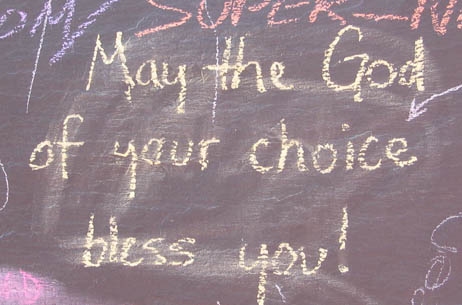 May the God
of your choice
bless you!